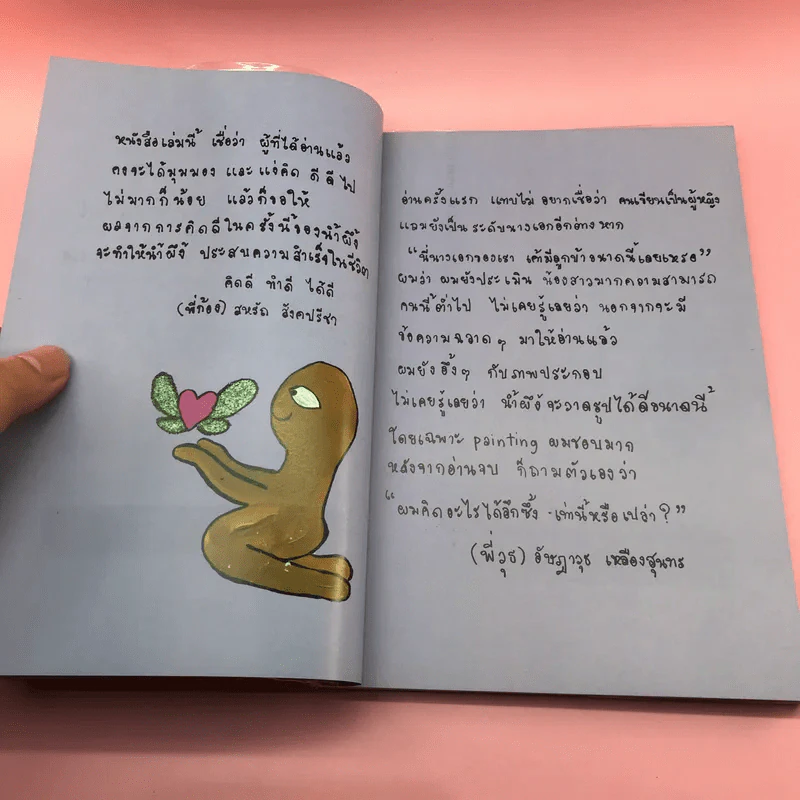 หนังสือเล่มนี้ เชื่อว่า ผู้ที่ได้อ่านแล้ว
คงจะได้มุมมอง และ แง่คิด ดี ดี ไป
ไม่มากก็น้อย แล้วก็ขอให้
ผลจากการคิดดีในครั้งนี้ของน้ำผึ้ง
จะทำให้น้ำผึ้ง ประสบความสำเร็จในชีวิต
คิดดี ทำดี ได้ดี
(พี่ก้อง) สหรัถ สังคปรีชา
อ่านครั้งแรก แทบไม่ อยากเชื่อว่า คนเขียนเป็นผู้หญิง
แถมยังเป็น ระดับนางเอกอีกต่างหาก
“นี่นางเอกของเรา เค้ามีลูกบ้าขนาดนี้เลยเหรอ”
ผมว่า ผมยังประเมิน น้องสาวมากความสามารถ
คนนี้ต่ำไป ไม่เคยรู้เลยว่า นอกจากจะมี
ข้อความฉลาด ๆ มาให้อ่านแล้ว
ผมยังอึ้งๆ กับภาพประกอบ
ไม่เคยรู้เลยว่า น้ำผึ้งจะวาดรูปได้ดีขนาดนี้
โดยเฉพาะ painting ผมชอบมาก
หลังจากอ่านจบ ก็ถามตัวเองว่า
“ผมคิดอะไรได้ลึกซึ้ง เท่านี้หรือเปล่า?”
(พี่วุธ) อัษฎาวุธ เหลืองสุนทร